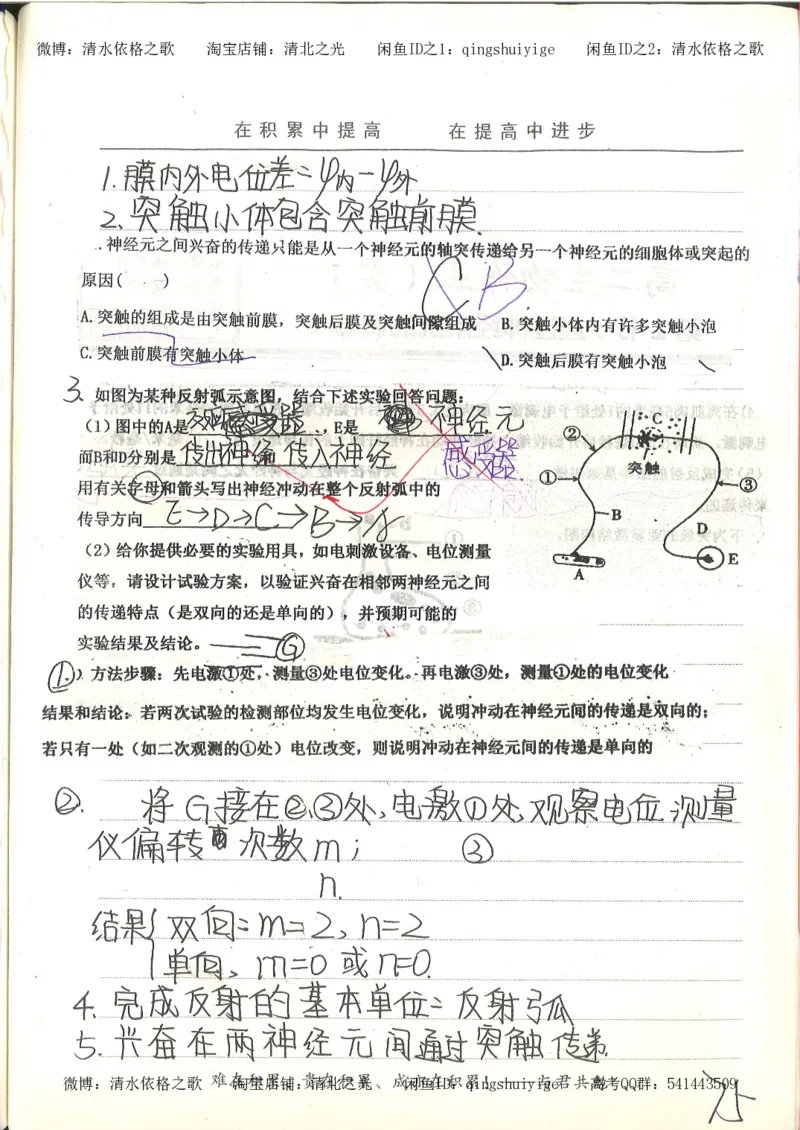 微博：清水依格之歌 淘宝店铺：清北之光 闲鱼ID之1：qingshuiyige 闲鱼ID之2：清水依格之歌
在积累中提高 在提高中进步
1.膜内外电位差=φ内-φ外
2.突触小体包含突触前膜.
神经元之间兴奋的传递只能是从一个神经元的轴突传递给另一个神经元的细胞体或突起的
原因( ) C B
A.突触的组成是由突触前膜，突触后膜及突触间隙组成 B.突触小体内有许多突触小泡
C.突触前膜有突触小体 D.突触后膜有突触小泡
3. 如图为某种反射弧示意图，结合下述实验回答问题：
(1)图中的A是效应器，E是 神经元
而B和D分别是传出神经和传入神经 感受器.
用有关字母和箭头写出神经冲动在整个反射弧中的
传导方向 E→D→C→B→A
C
突触
② ① ③
B D
A E
(2)给你提供必要的实验用具，如电刺激设备、电位测量
仪等，请设计试验方案，以验证兴奋在相邻两神经元之间
的传递特点（是双向的还是单向的），并预期可能的
实验结果及结论。 G
①.）方法步骤：先电激①处，测量③处电位变化。再电激③处，测量①处的电位变化
结果和结论：若两次试验的检测部位均发生电位变化，说明冲动在神经元间的传递是双向的；
若只有一处（如二次观测的①处）电位改变，则说明冲动在神经元间的传递是单向的
②. 将G接在②、③处,电激①处,观察电位测量
仪偏转 次数m; ③
n.
结果{双向:m=2,n=2
单向,m=0或n=0.
4.完成反射的基本单位:反射弧
5.兴奋在两神经元间通过突触传递.
微博：清水依格之歌 淘宝店铺：清北之光 闲鱼ID：qingshuiyige 高考QQ群：541443509
75